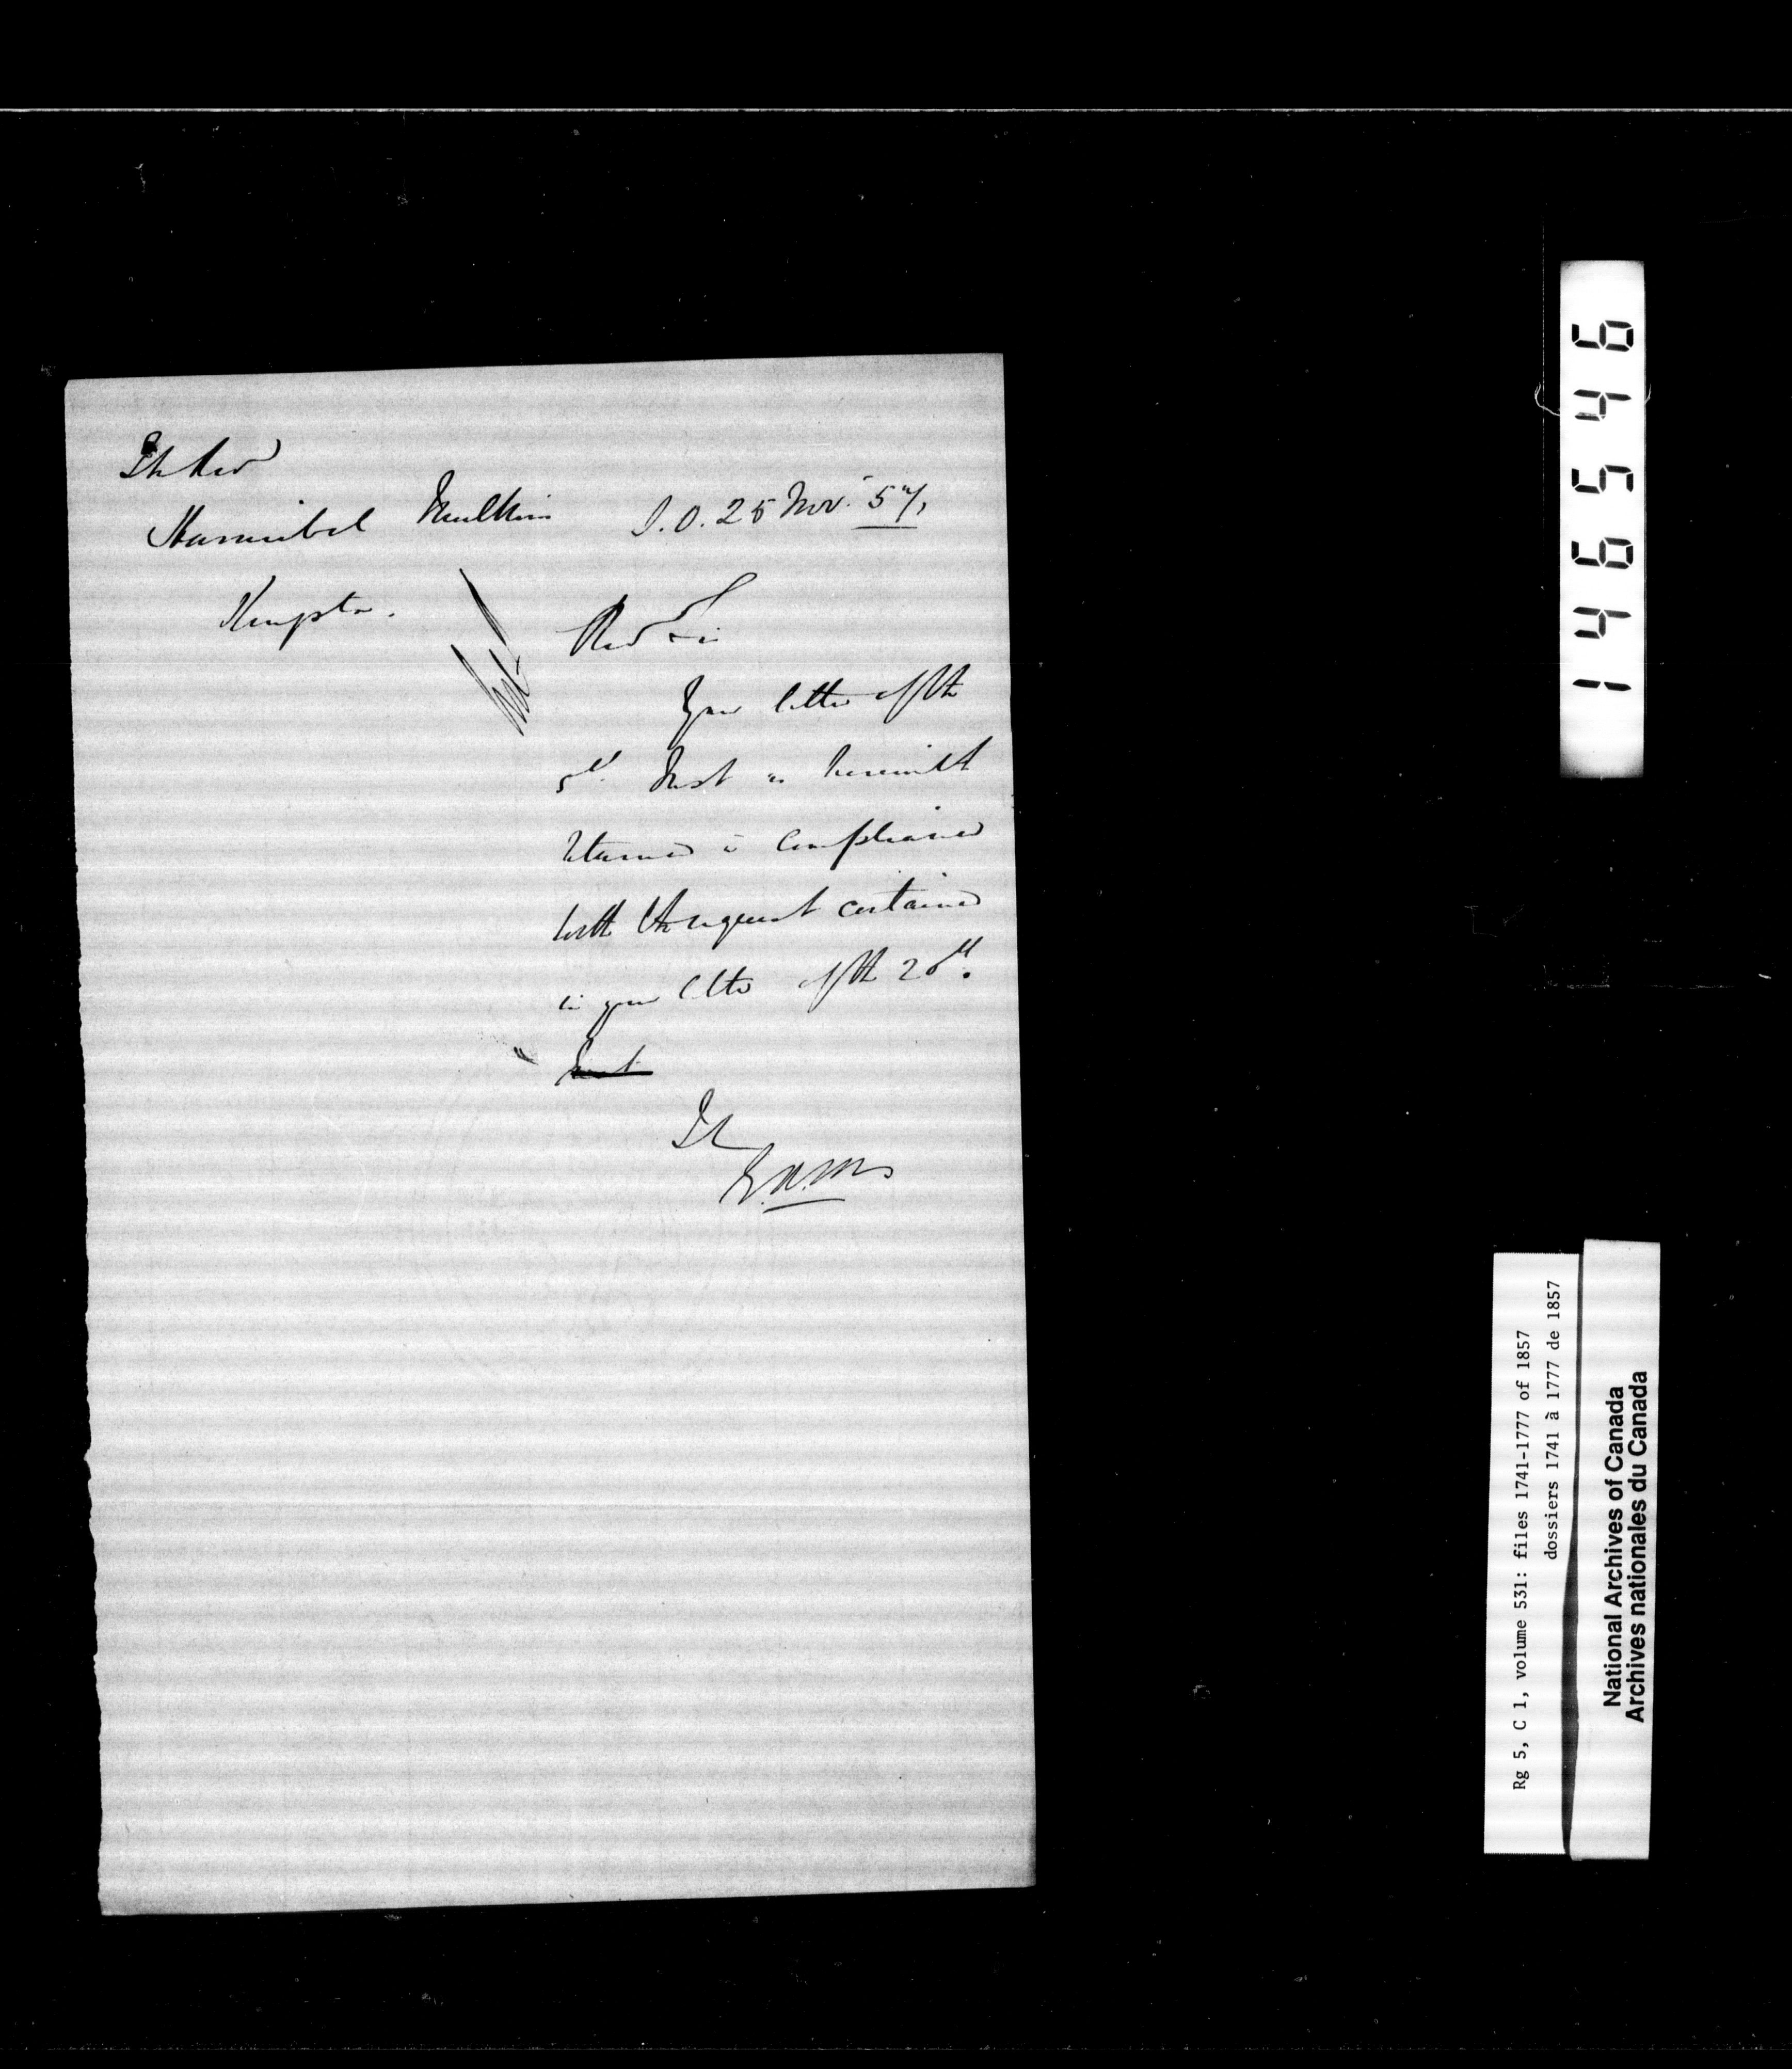 The Rev
Hannibal Mulkins
Kingston.
S.O. 25 Nov. 57,
Rev Sir
Your letter of the
5th Inst is herewith
returned in compliance
with the request contained
in your letter of the 20th.
E.A.M.
146546
Rg 5, C 1, volume 531: files 1741-1777 of 1857
dossiers 1741 à 1777 de 1857
National Archives of Canada
Archives nationales du Canada